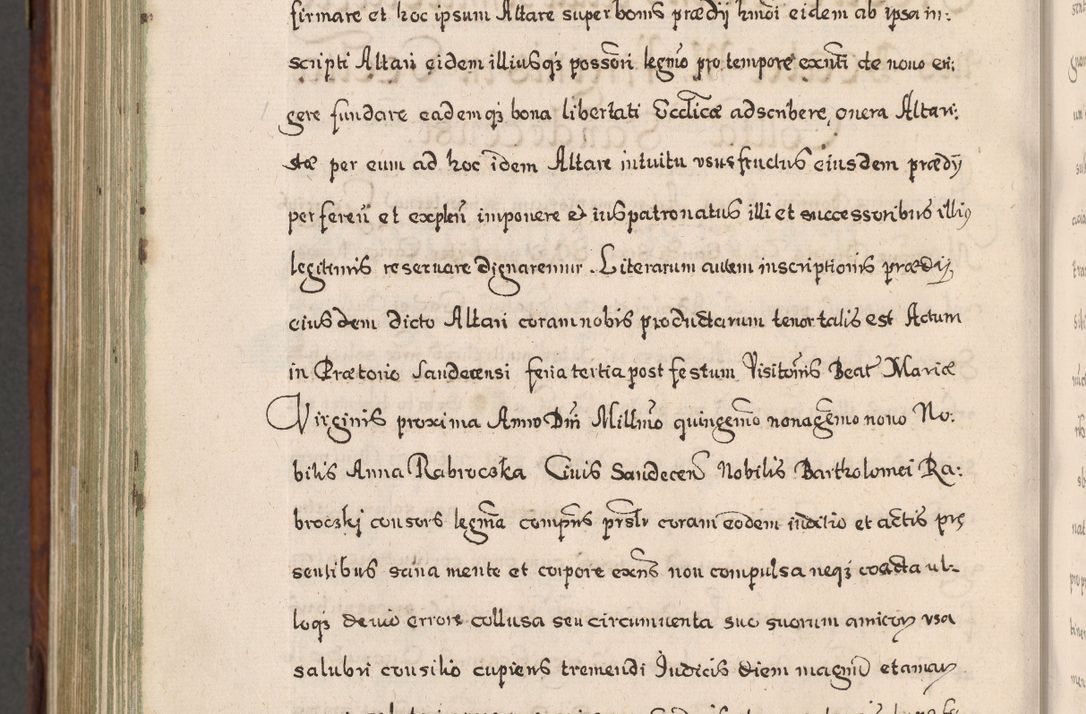 firmare et hoc ipsum Altare super bonis prædij hmoi eidem ab ipsa in:
scripti Altari eidem illiusq3 possori legmo pro tempore exnti de nouo eri:
gere fundare eademq3 bona libertati Ecclicæ adscribere, onera Altari:
stæ per eum ad hoc idem Altare intuitu vsusfructus eiusdem prædij
perferen et explen imponere et iuspatronatus illi et successoribus illiq
legitimis reseruare dignaremur. Literarum autem inscriptionis prædij
eiusdem dicto Altari coram nobis productarum tenor talis est Actum
in Prætorio Sandecensi feria tertia post festum Visitonis Beat Mariæ
Virginis proxima Anno Dni Millmo quingemo nonagemo nono No:
bilis Anna Rabroczka Ciuis Sandecen Nobilis Bartholomei Ra:
broczki consors legma compns prslr coram eodem iudicio et actis præ
sentibus sana mente et corpore exns non compulsa neq3 coacta ul-
loq3 deuio errore collusa seu circumuenta suo suorum amicor vsa
salubri consilio cupiens tremendi Judicis diem magnu et amar